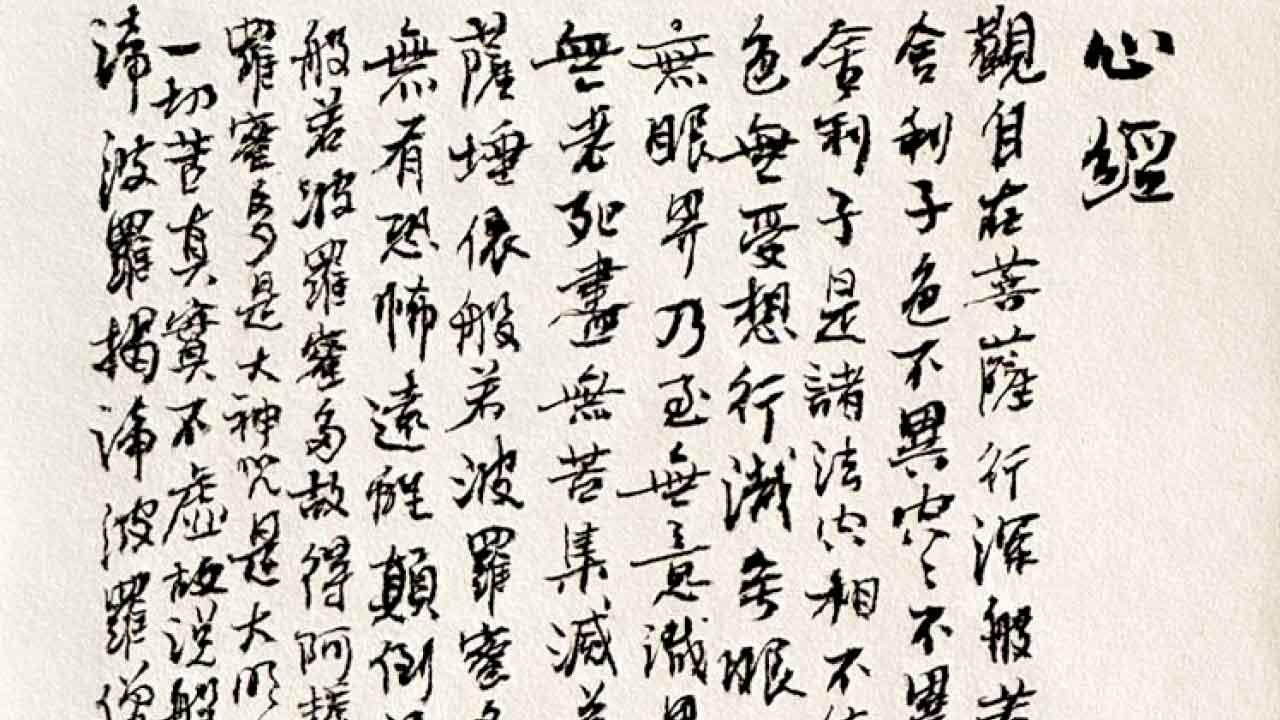 心經
觀自在菩薩行深般若
舍利子色不異空々不異
舍利子是諸法空相不
色無受想行識無眼
無眼界乃至無意識界
無老死盡無苦集滅
薩埵依般若波羅蜜多
無有恐怖遠離顛倒
般若波羅蜜多故得阿耨
羅蜜多是大神咒是大明
一切苦真實不虛故說般
諦波羅揭諦波羅僧